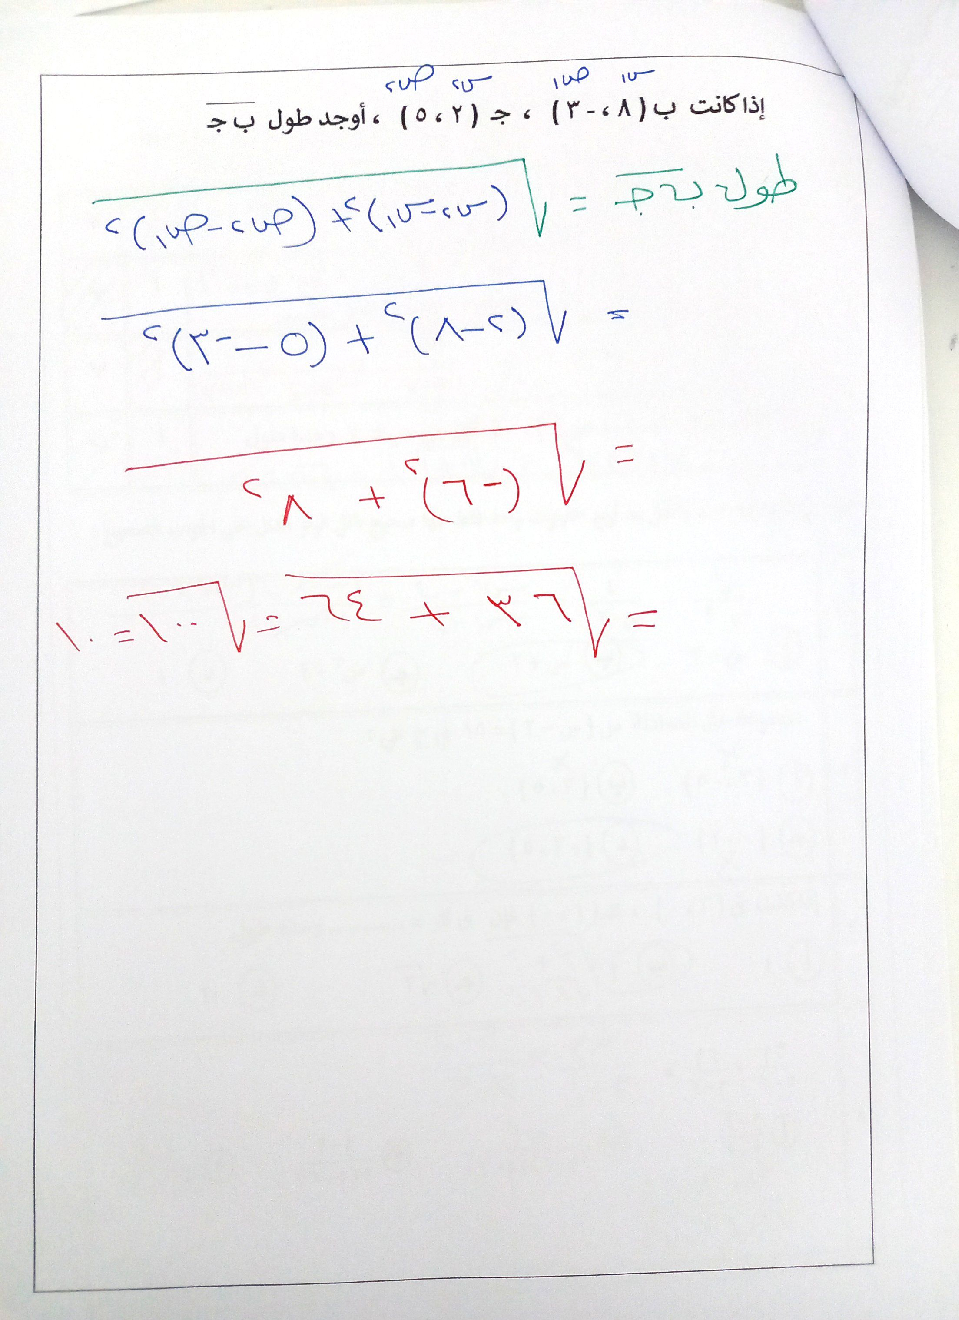 س١ ص١ س٢ ص٢
إذا كانت ب (٨ ، -٣) ، جـ (٢ ، ٥) ، أوجد طول ب جـ
طول ب جـ = √(س٢ - س١)٢ + (ص٢ - ص١)٢
= √(٢ - ٨)٢ + (٥ - -٣)٢
= √(-٦)٢ + ٨٢
= √٣٦ + ٦٤ = √١٠٠ = ١٠